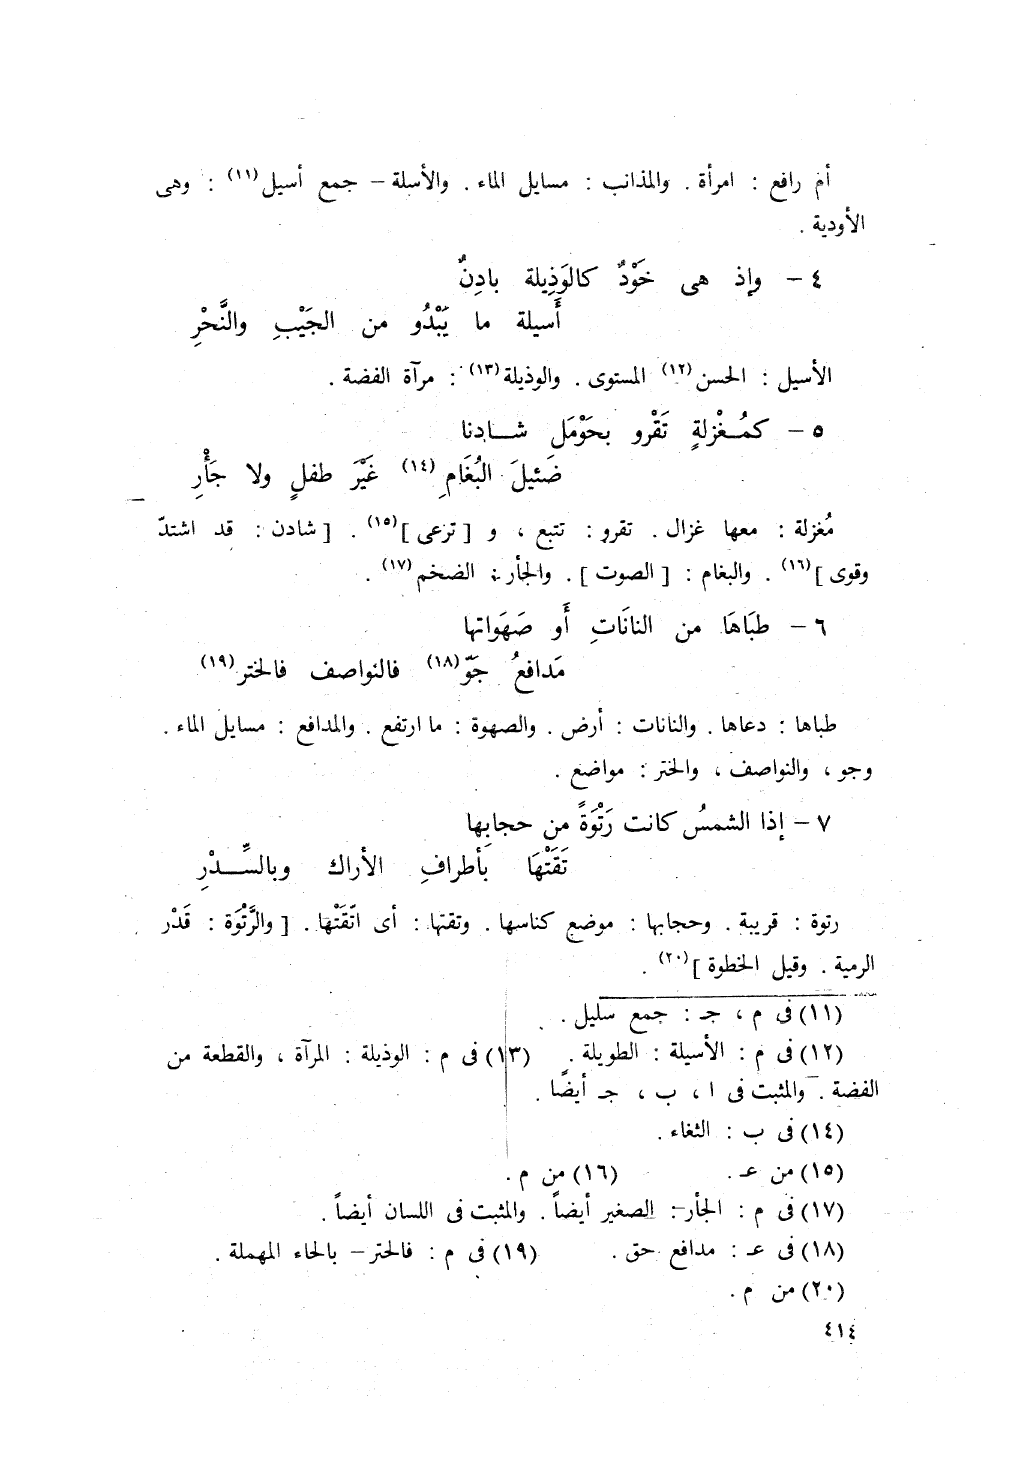 أم رافع : امرأة . والمذانب : مسايل الماء . والأسلة – جمع أسيل(١١) : وهى
الأودية .
٤ – وإذ هى خَوْدٌ كالوَذِيلة بادِنٌ
أَسيلة ما يَبْدُو من الجَيْبِ والنَّحْرِ
الأسيل : الحسن(١٢) المستوى . والوذيلة(١٣) : مرآة الفضة .
٥ – كمُغْزلةٍ تَقْرو بحَوْمَل شادنا
ضَئيلَ البُغَامِ(١٤) غَيْرَ طفلٍ ولا جَأْرِ
مُغزلة : معها غزال . تقرو : تتبع ، و [ ترعى ](١٥) . [ شادن : قد اشتدّ
وقوى ](١٦) . والبغام : [ الصوت ] . والجأر : الضخم(١٧) .
٦ – طبَاهَا من النانَاتِ أَو صَهَواتها
مَدافعُ جَوّ(١٨) فالنواصف فالختر(١٩)
طباها : دعاها . والنانات : أرض . والصهوة : ما ارتفع . والمدافع : مسايل الماء .
وجو ، والنواصف ، والختر : مواضع .
٧ – إذا الشمسُ كانت رَتْوَةً من حجابِها
تَقَتْهَا بأطرافِ الأراك وبالسِّدْرِ
رتوة : قريبة . وحجابها : موضع كناسها . وتقتها : أى اتّقَتْهَا . [ والرَّتْوَة : قَدْر
الرمية . وقيل الخطوة ](٢٠) .
(١١) فى م ، جـ : جمع سليل .
(١٢) فى م : الأسيلة : الطويلة . (١٣) فى م : الوذيلة : المرآة ، والقطعة من
الفضة . والمثبت فى ا ، ب ، جـ أيضًا .
(١٤) فى ب : الثغاء .
(١٥) من عـ . (١٦) من م .
(١٧) فى م : الجأر : الصغير أيضاً . والمثبت فى اللسان أيضاً .
(١٨) فى عـ : مدافع حق . (١٩) فى م : فالحتر – بالحاء المهملة .
(٢٠) من م .
٤١٤